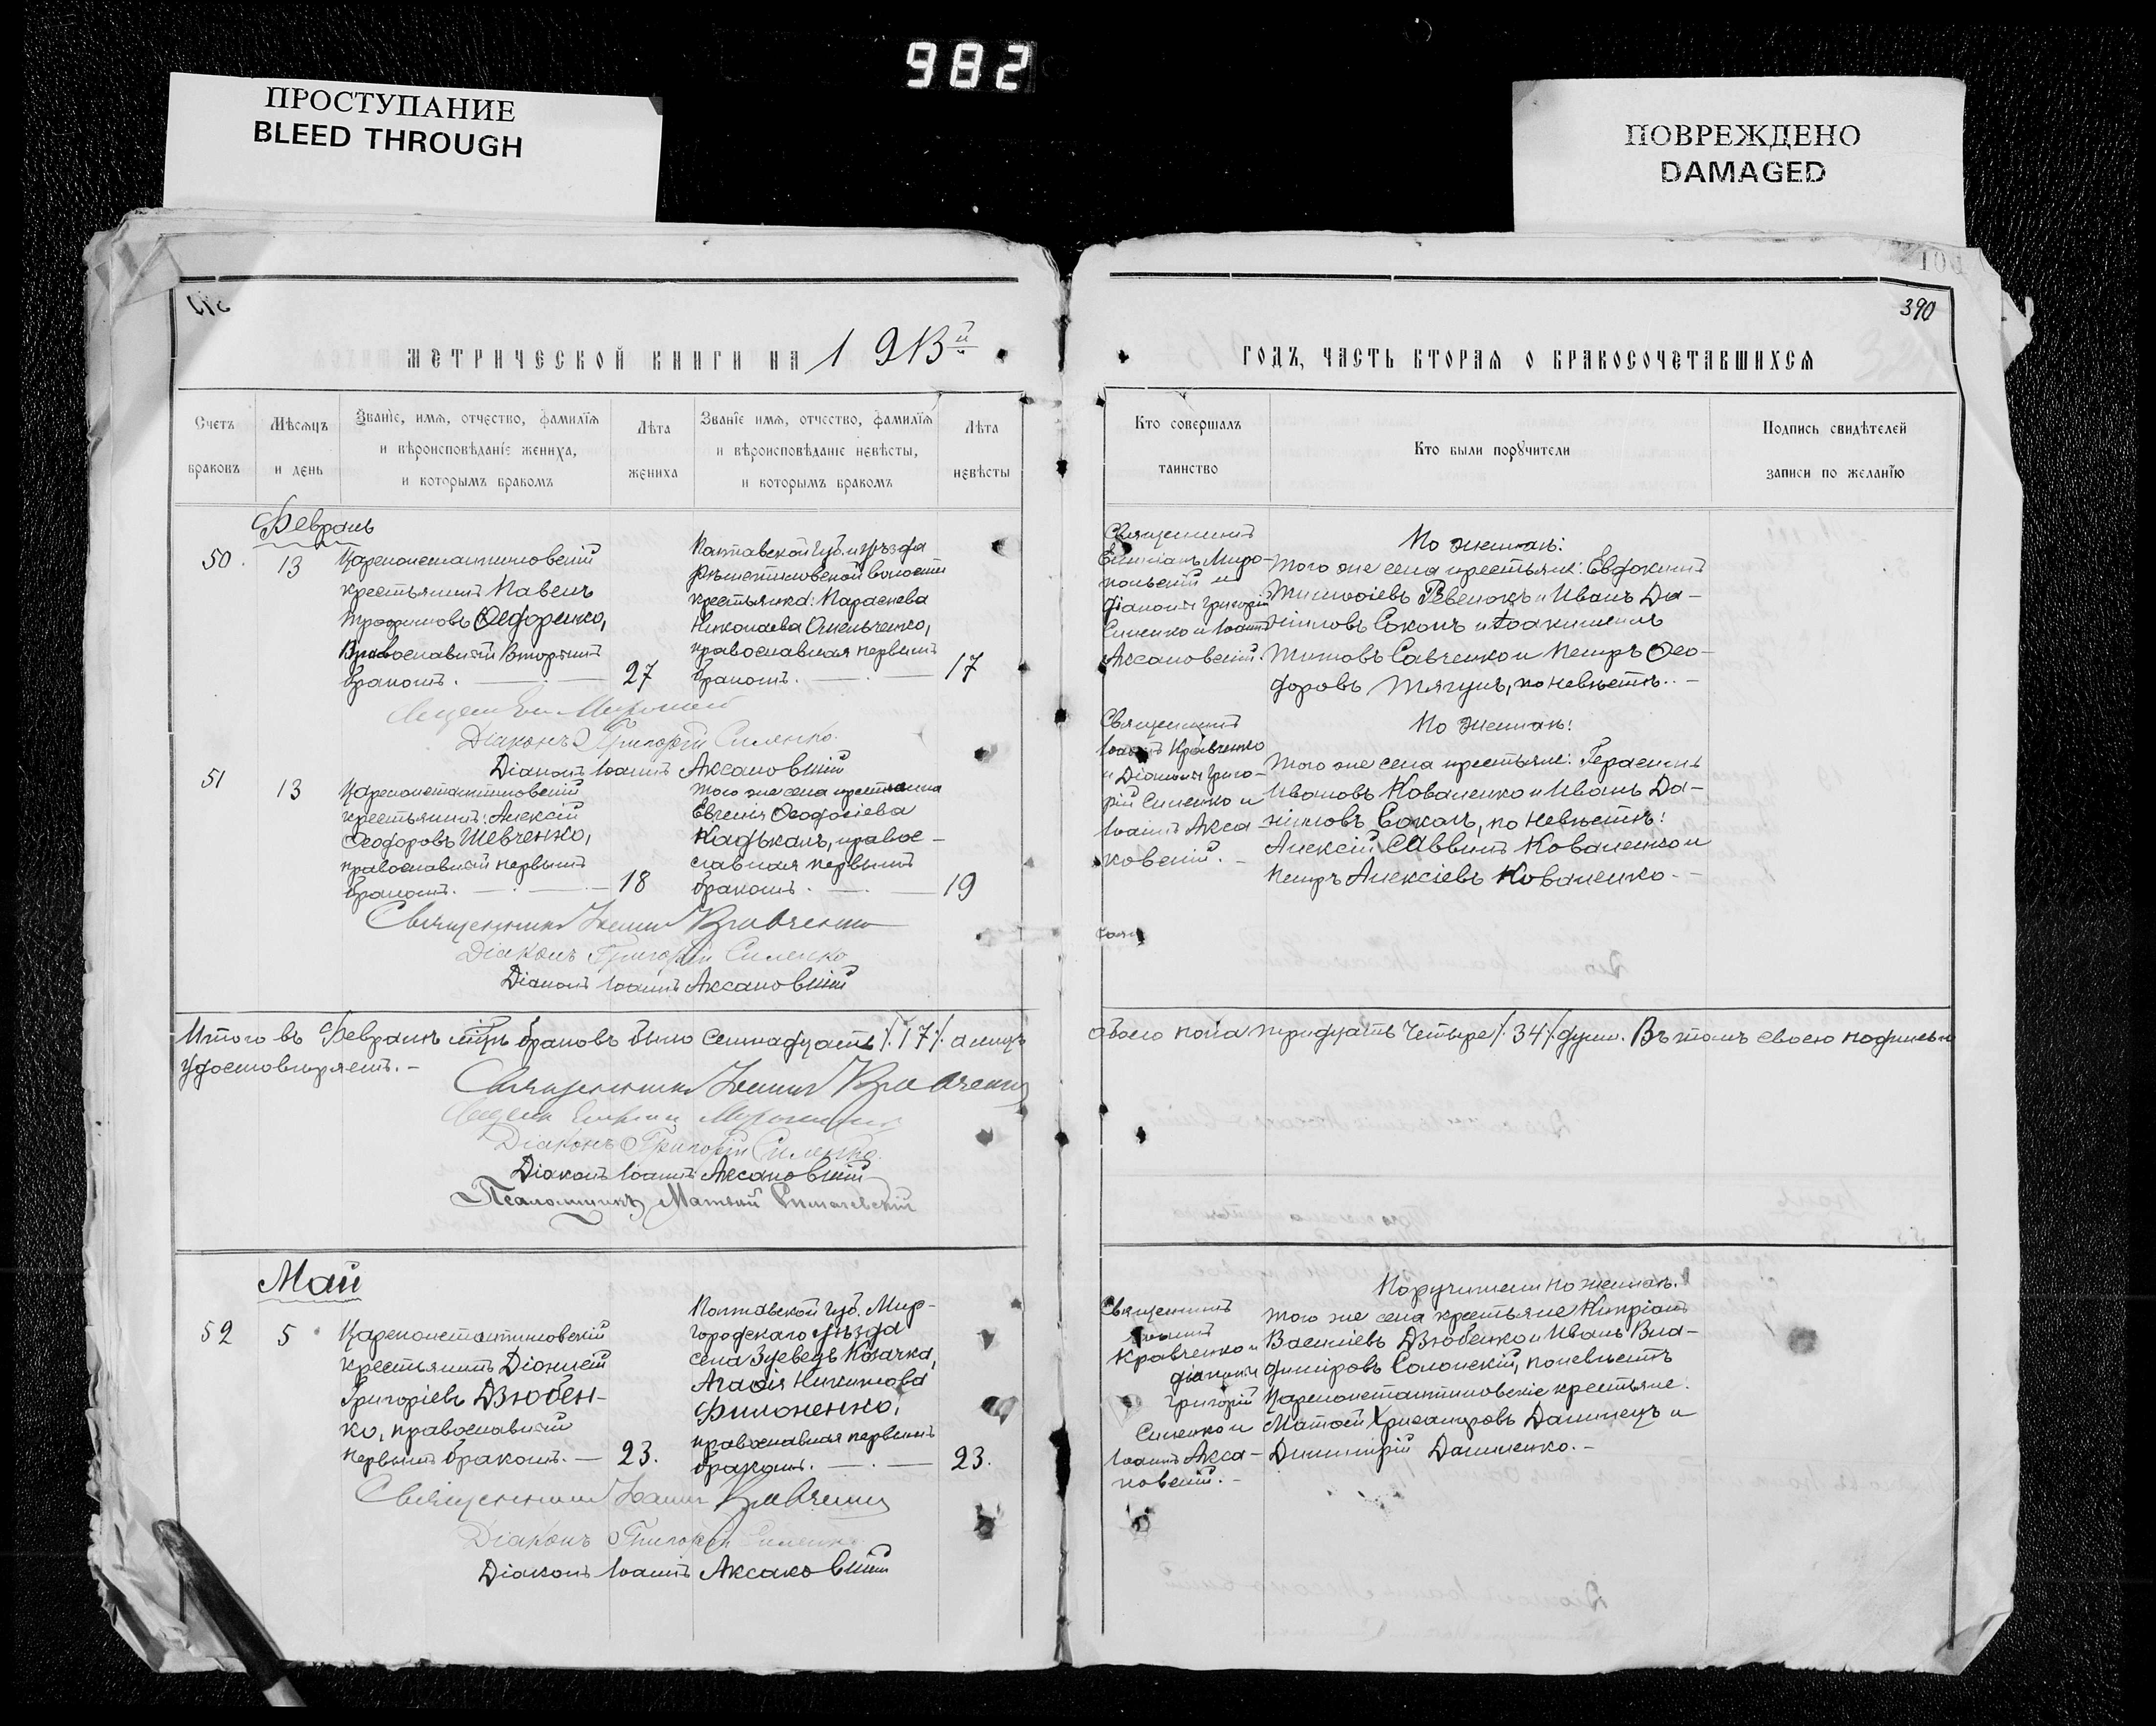 982
ПРОСТУПАНИЕ
BLEED THROUGH
ПОВРЕЖДЕНО
DAMAGED
390
МЕТРИЧЕСКОЙ КНИГИ НА 1913й
ГОДЪ, ЧАСТЬ ВТОРАЯ О БРАКОСОЧЕТАВШИХСЯ
Счетъ браковъ
Мѣсяцъ и день
Званіе, имя, отчество, фамилія
и вѣроисповѣданіе жениха,
и которымъ бракомъ
Лѣта жениха
Званіе имя, отчество, фамилія
и вѣроисповѣданіе невѣсты,
и которымъ бракомъ
Лѣта невѣсты
Кто совершалъ
таинство
Кто были поручители
Подпись свидѣтелей
записи по желанію
Февраль
50.
13
Цареконстантиновскій
крестьянинъ Павелъ
Трофимовъ Ѳедоренко,
Православный Вторымъ
бракомъ.
27
Полтавской губ. и уѣзда
Рѣшетиловской волости
крестьянка: Параскева
Николаева Омельченко,
православная первымъ
бракомъ.
17
Священникъ
Миро-
польскій и
діаконы Григорій
Силенко и Іоаннъ
Аксаковскій.
По женихѣ:
того же села крестьяне: Евдокимъ
Тимоѳіевъ Ревенокъ и Иванъ Да-
ниловъ Соколъ и Іоакимъ
Титовъ Савченко и Петръ Ѳео-
доровъ Тягунъ, по невѣстѣ. –
Діаконъ Григорій Силенко.
Діаконъ Іоаннъ Аксаковскій
51
13
Цареконстантиновскій
крестьянинъ: Алексій
Ѳеодоровъ Шевченко,
православный первымъ
бракомъ.
18
того же села крестьянка
Евгенія Ѳеодосіева
Кадькалъ, правос-
славная первымъ
бракомъ.
19
Священникъ
Іоаннъ Кравченко
и Діаконы Григо-
рій Силенко и
Іоаннъ Акса-
ковскій. –
По женихѣ:
того же села крестьяне: Герасимъ
Ивановъ Коваленко и Иванъ Да-
ниловъ Соколъ, по невѣстѣ:
Алексій Саввинъ Коваленко и
Петръ Алексіевъ Коваленко. –
Священникъ Іоаннъ Кравченко
Діаконъ Григорій Силенко
Діаконъ Іоаннъ Аксаковскій
Итого въ Февралѣ мцѣ браковъ было семнадцать /.17/. а лицъ
обоего пола тридцать четыре /.34/. душ. Въ томъ своею подписью
удостовѣряетъ. –
Священникъ Іоаннъ Кравченко
Діаконъ Григорій Силенко.
Діаконъ Іоаннъ Аксаковскій
Псаломщикъ Матвѣй
Май
52
5
Цареконстантиновскій
крестьянинъ Діонисій
Григоріевъ Дзюбен-
ко, православный
первымъ бракомъ. –
23.
Полтавской губ. Мир-
городскаго уѣзда
села Зуевецъ Козачка,
Агаѳія Никитова
Филоненко,
православная первымъ
бракомъ.
23.
Священникъ
Іоаннъ
Кравченко и
діаконы
Григорій
Силенко и
Іоаннъ Акса-
ковскій. –
Поручители по женихѣ.
того же села крестьяне Кипріанъ
Василіевъ Дзюбенко и Иванъ Вла-
диміровъ Солонскій, по невѣстѣ
Цареконстантиновскіе крестьяне.
Матѳей Хрисанѳовъ Данилецъ и
Димитрій Даниленко. –
Священникъ Іоаннъ Кравченко
Діаконъ Григорій Силенко
Діаконъ Іоаннъ Аксаковскій